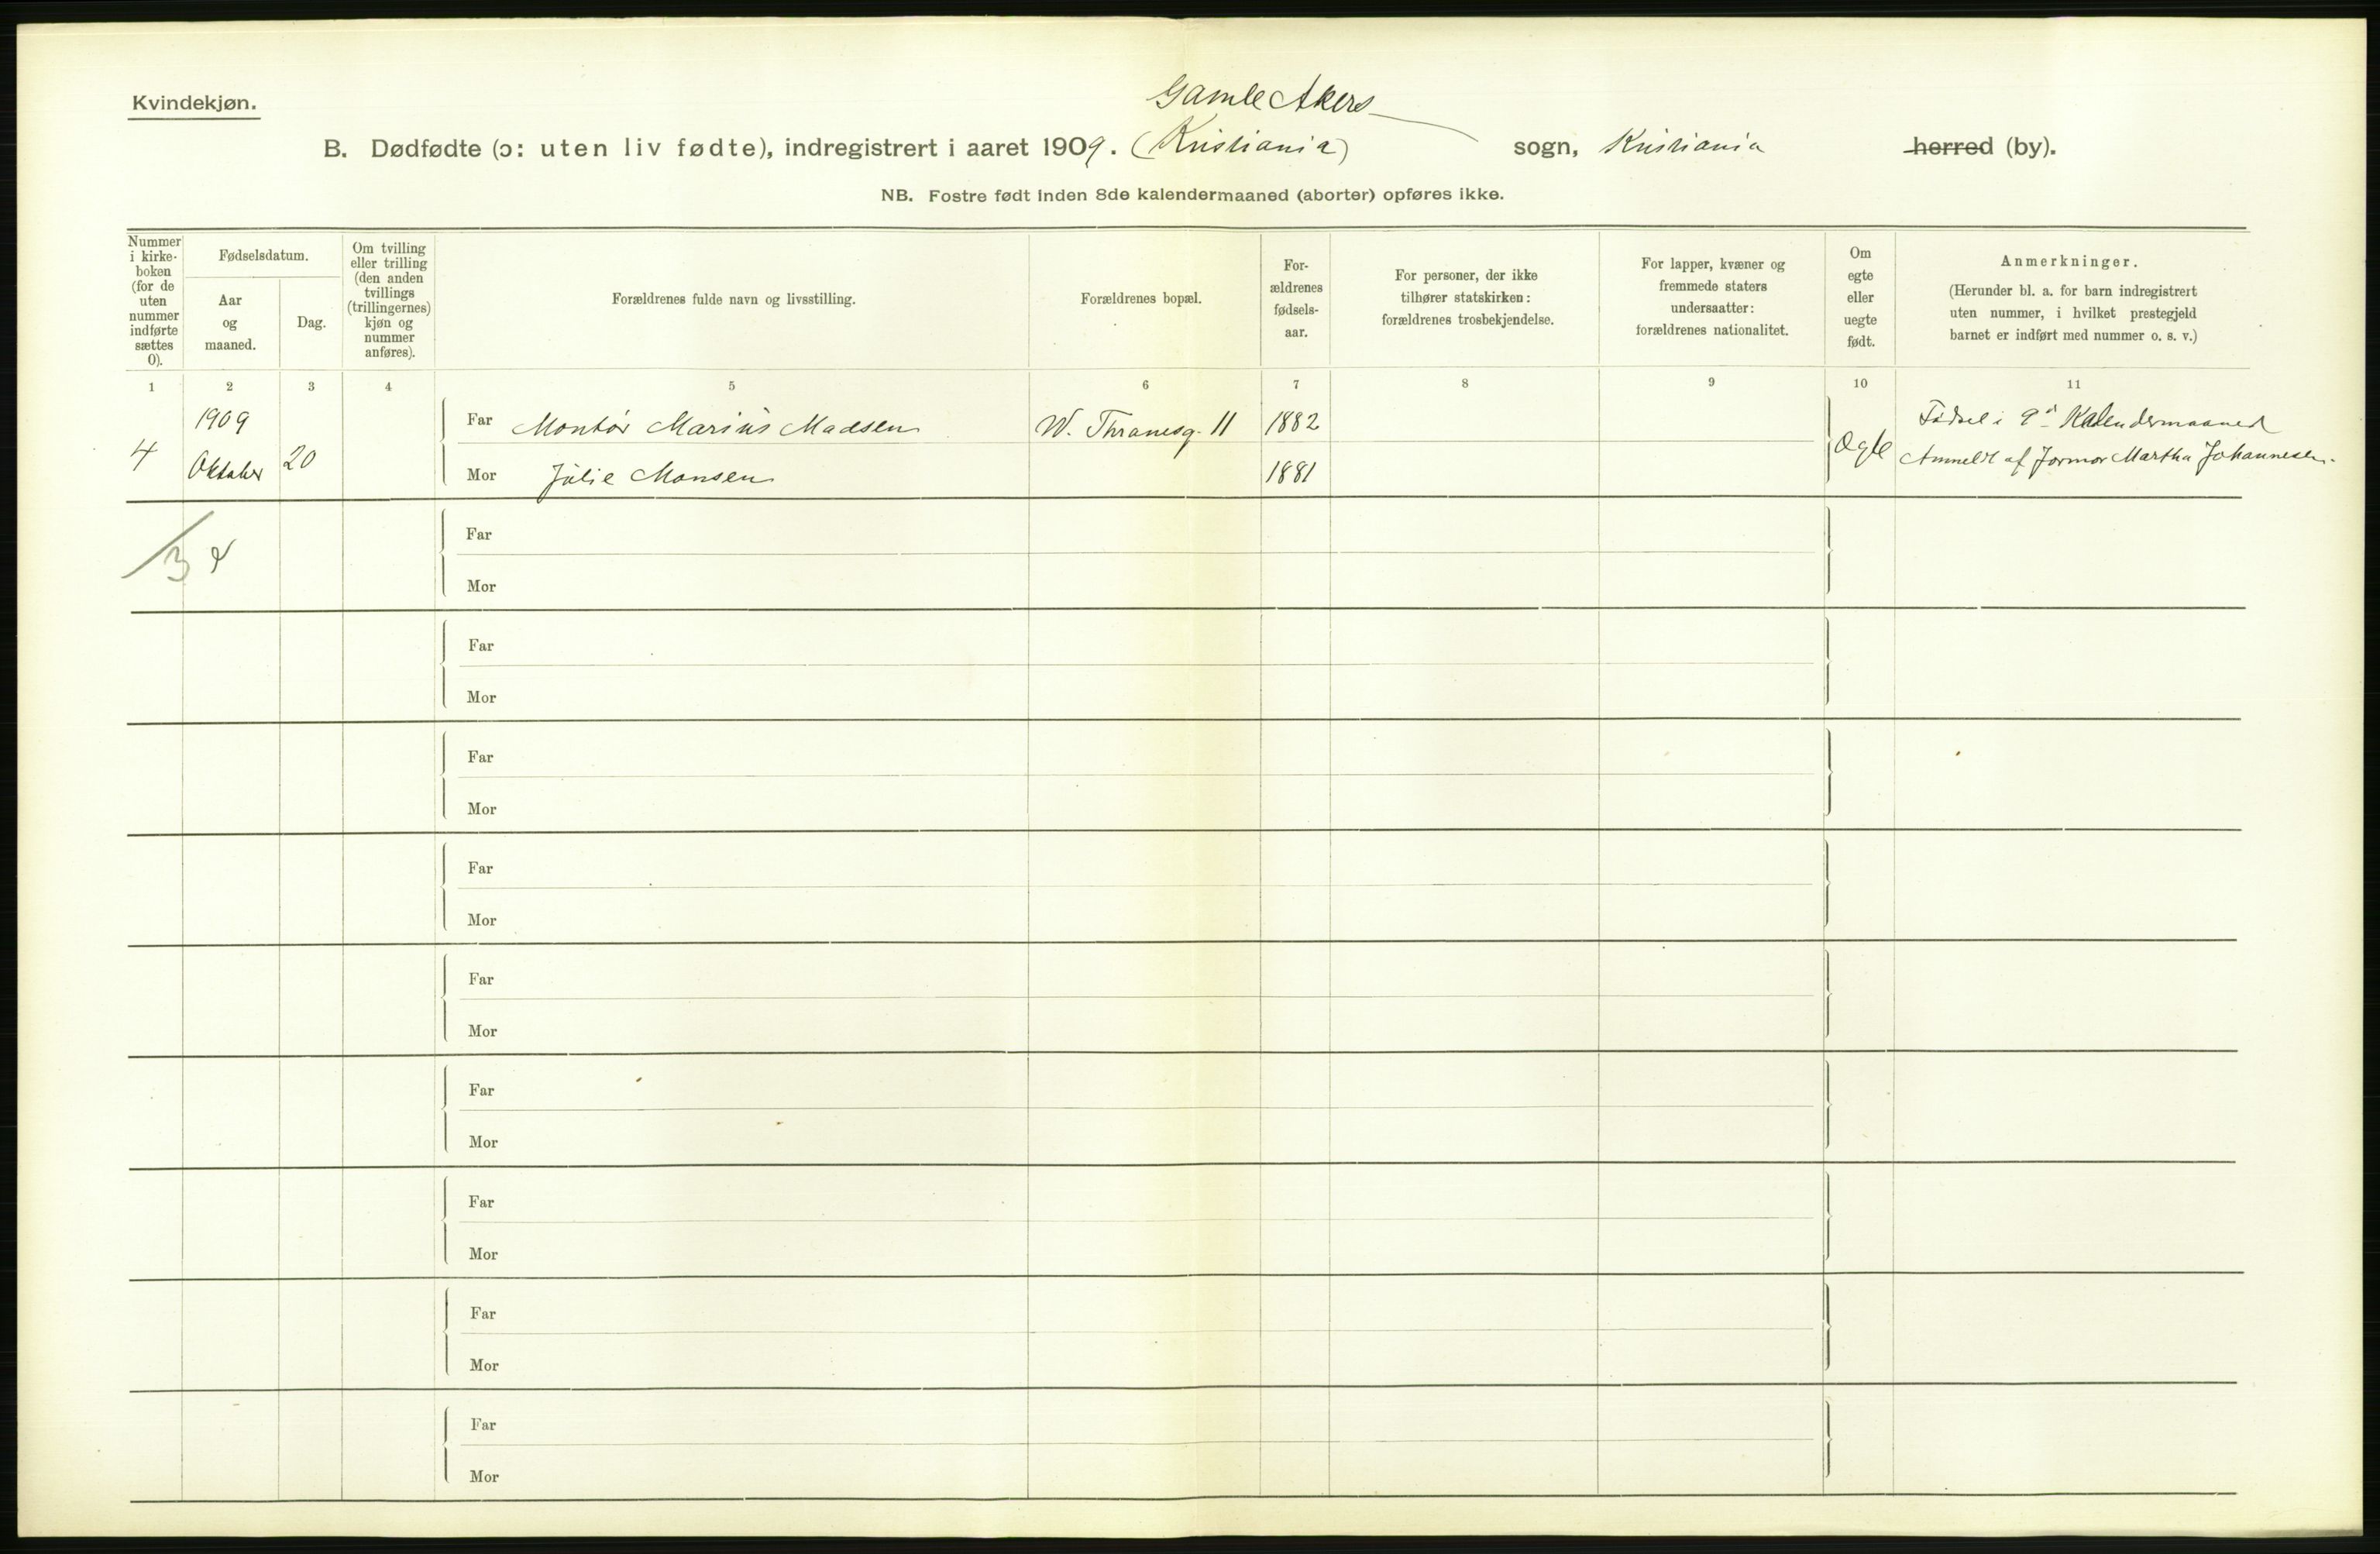 Kvindekjøn.
Gamle Akers
B. Dødfødte (ɔ: uten liv fødte), indregistrert i aaret 1909. (Kristiania) sogn, Kristiania herred (by).
NB. Fostre født inden 8de kalendermaaned (aborter) opføres ikke.
Nummer i kirke-boken (for de uten nummer indførte sættes 0).
Fødselsdatum.
Aar og maaned.
Dag.
Om tvilling eller trilling (den anden tvillings (trillingernes) kjøn og nummer anføres).
Forældrenes fulde navn og livsstilling.
Forældrenes bopæl.
For-ældrenes fødsels-aar.
For personer, der ikke tilhører statskirken: forældrenes trosbekjendelse.
For lapper, kvæner og fremmede staters undersaatter: forældrenes nationalitet.
Om egte eller uegte født.
Anmerkninger.
(Herunder bl. a. for barn indregistrert uten nummer, i hvilket prestegjeld barnet er indført med nummer o. s. v.)
1 2 3 4 5 6 7 8 9 10 11
1909 Far Montør Marius Madsen W. Thranesg. 11 1882 Fødsel i 9d Kalendermaaned
4 Oktober 20 Mor Julie Monsen 1881 Ægte Anmeldt af Jormor Martha Johannesen.
3
Far
Mor
Far
Mor
Far
Mor
Far
Mor
Far
Mor
Far
Mor
Far
Mor
Far
Mor
Far
Mor